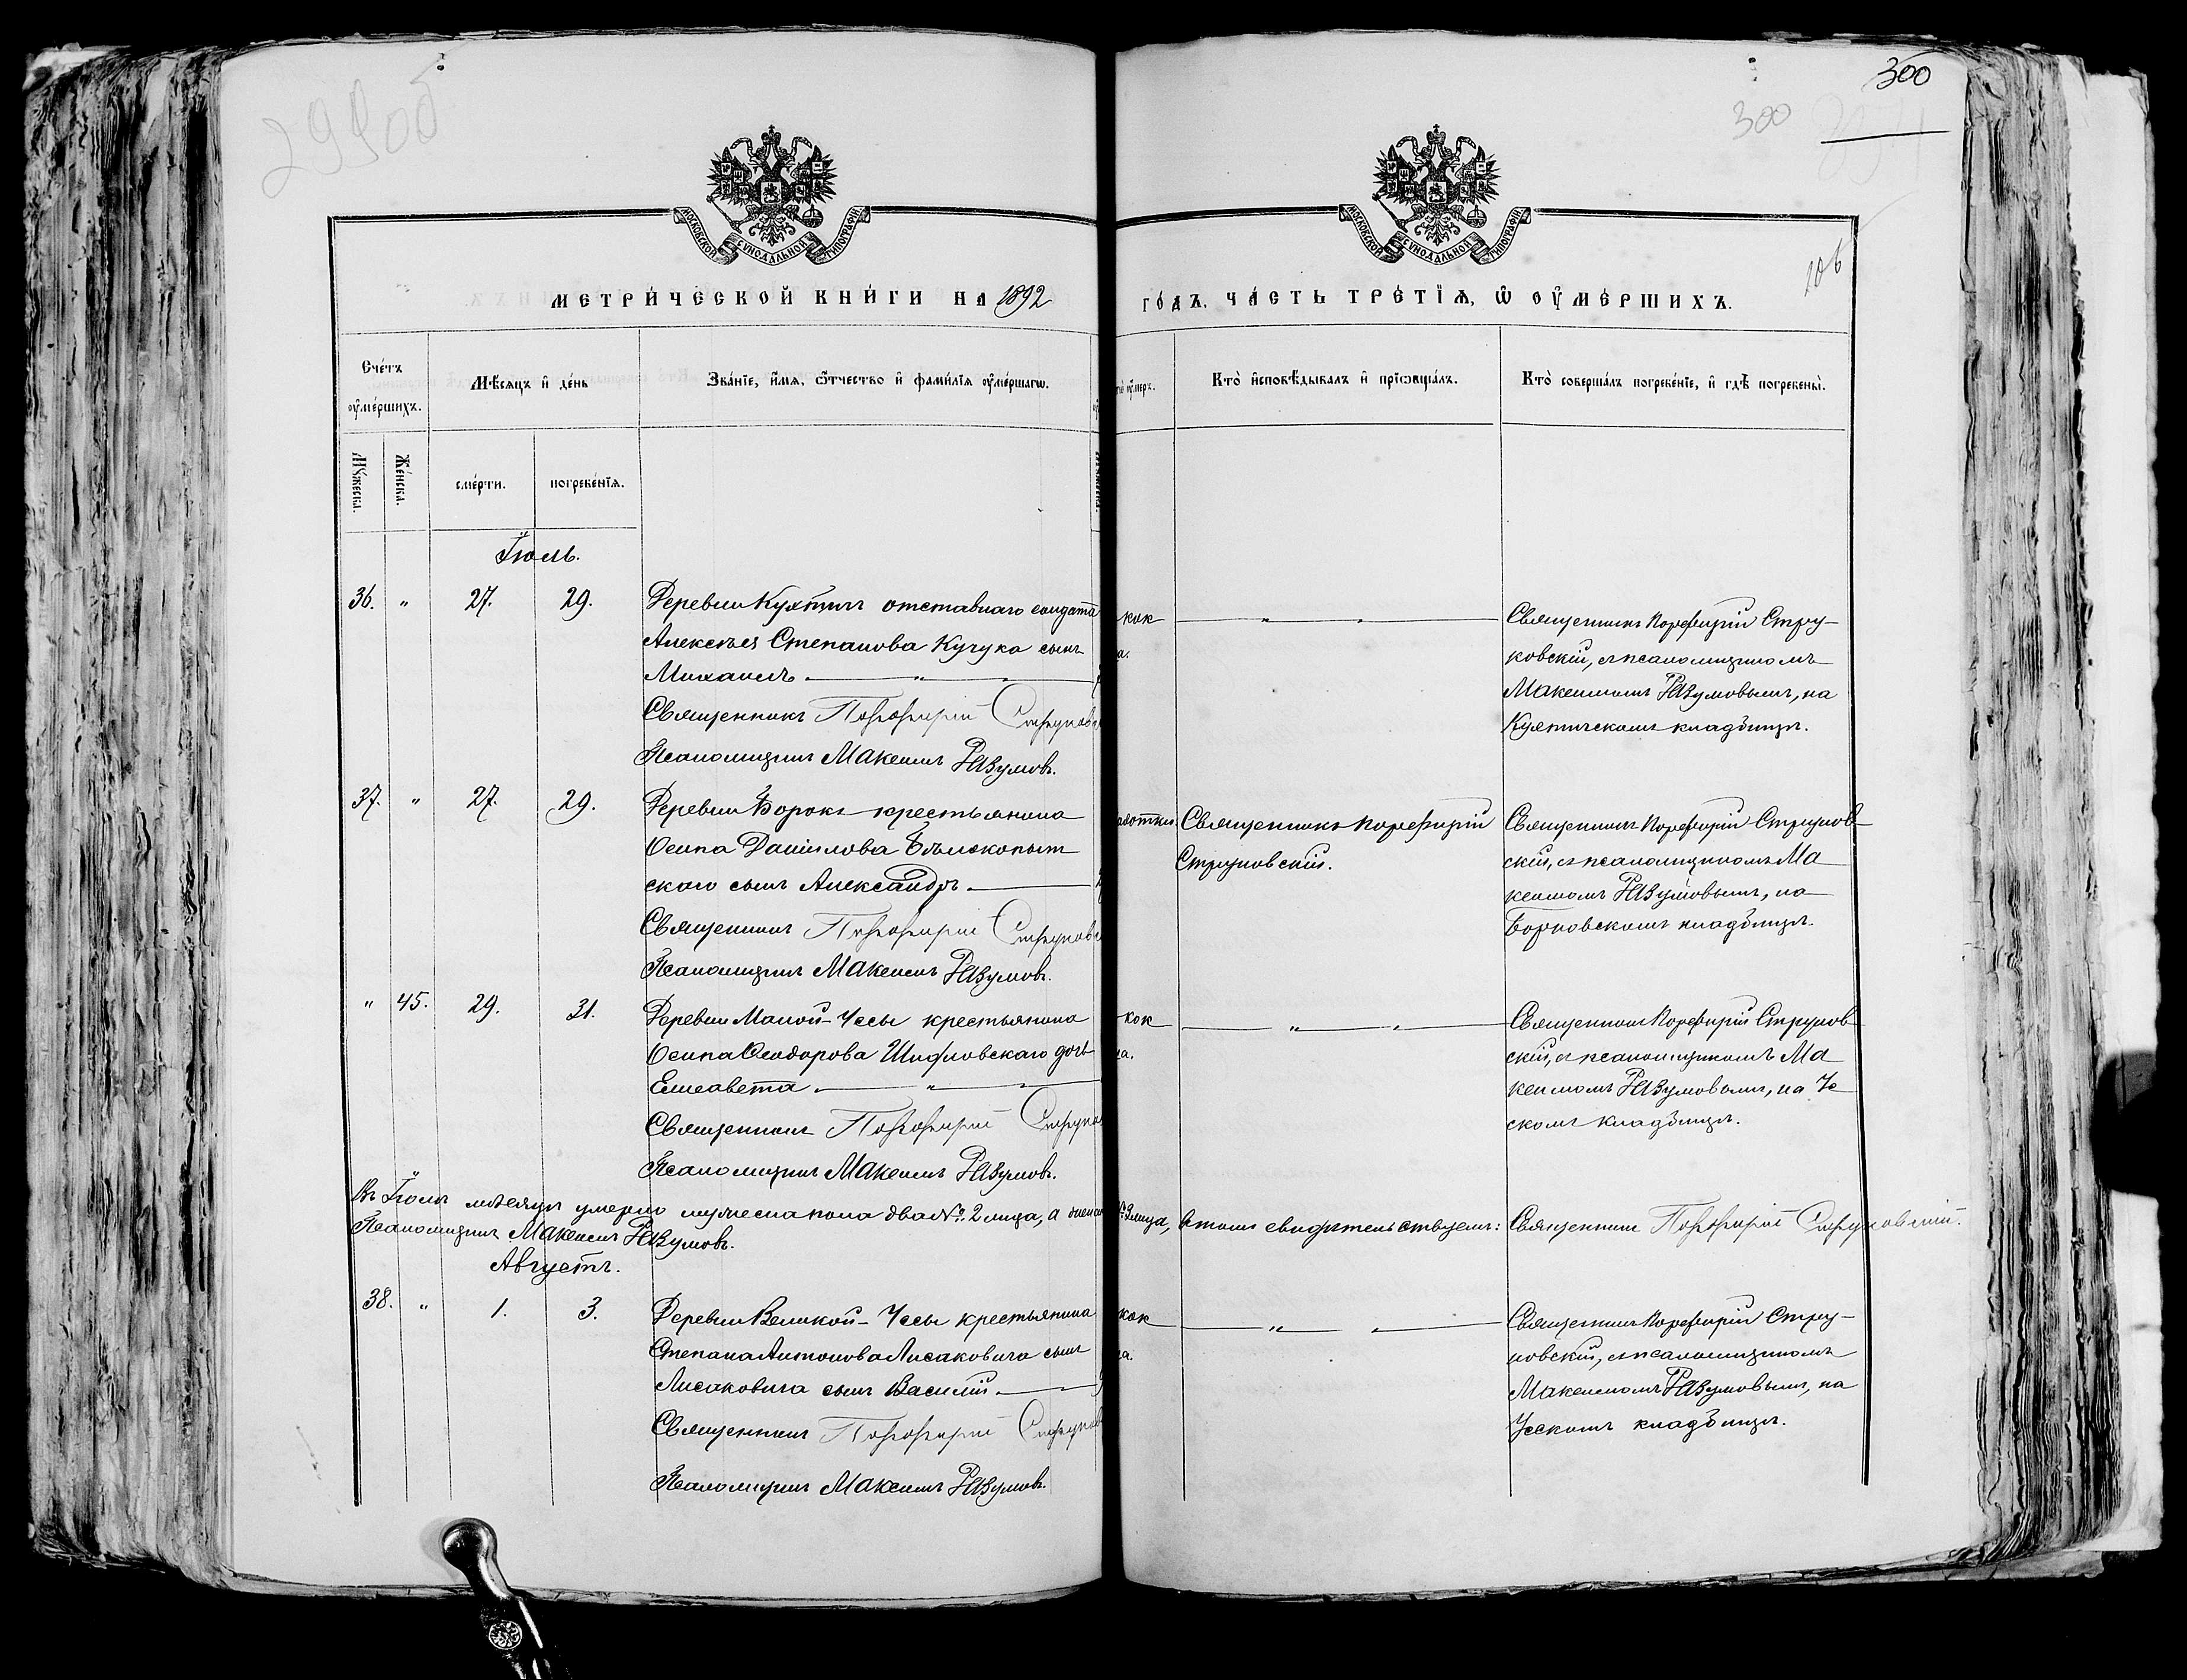 29905
300
300
106
МОСКОВСКОЙ СѴНОДАЛЬНОЙ ТИПОГРАФІИ
МОСКОВСКОЙ СѴНОДАЛЬНОЙ ТИПОГРАФІИ
МЕТРИ́ЧЕСКОЙ КНИ́ГИ НА 1892 ГО́ДЪ, ЧА́СТЬ ТРЕ́ТІѦ, Ѡ҆ ОУ҆МЕ́РШИХЪ.
Сче́тъ оу҆ме́ршихъ.
Мѣ́сѧцъ и҆ де́нь
Зва́нїе, и҆́мѧ, ѻ҆́тчество и҆ фами́лїѧ оу҆ме́ршагѡ.
Кто̀ и҆сповѣ́дывалъ и҆ прїѡбща́лъ.
Кто̀ соверша́лъ погребе́нїе, и҆ гдѣ̀ погребены̀.
Мꙋ́жеска.
Же́нска.
сме́рти.
погребе́нїѧ.
Іюль.
36. " 27. 29. Деревни Кухтичъ отставнаго солдата
Алексѣя Степанова Кучука сынъ
Михаилъ
Священникъ Порфирій Струковс
Псаломщикъ Максимъ Разумовъ.
кок
а.
Священникъ Порфирій Стру-
ковскій, съ псаломщикомъ
Максимомъ Разумовымъ, на
Кухтичскомъ кладбищѣ.
37. " 27. 29. Деревни Борокъ крестьянина
Осипа Даніилова Бѣлокопыт
скаго сынъ Александръ
Священникъ Порфирій Струковс
Псаломщикъ Максимъ Разумовъ.
Священникъ Порфирій
Струковскій.
Священникъ Порфирій Струков-
скій, съ псаломщикомъ Ма
ксимомъ Разумовымъ, на
Борковскомъ кладбищѣ.
" 45. 29. 31. Деревни Малой-Усы крестьянина
Осипа Ѳеодорова Шифловскаго дочь
Елисавета
Священникъ Порфирій Струков
Псаломщикъ Максимъ Разумовъ.
кок
а.
Священникъ Порфирій Струков
скій, съ псаломщикомъ Ма
ксимомъ Разумовымъ, на Ус
скомъ кладбищѣ.
Въ Іюлѣ мѣсяцѣ умерло мужеска пола два №: 2 лица, а женска лица, въ томъ свидѣтельствуемъ: Священникъ Порфирій Струковскій.
Псаломщикъ Максимъ Разумовъ.
Августъ.
38. " 1. 3. Деревни Великой-Усы крестьянина
Степана Антонова Лисаковича сынъ
Лисаковича сынъ Василій
Священникъ Порфирій Струков
Псаломщикъ Максимъ Разумовъ.
кок
а.
Священникъ Порфирій Стру-
ковскій, съ псаломщикомъ
Максимомъ Разумовымъ, на
Усскомъ кладбищѣ.